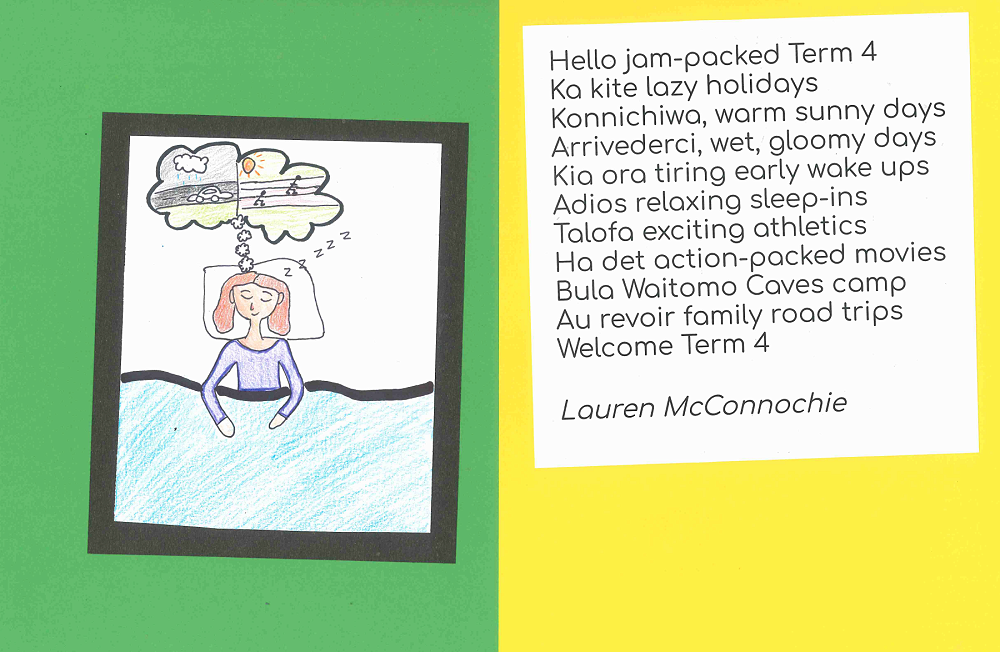 z z z z z z
Hello jam-packed Term 4
Ka kite lazy holidays
Konnichiwa, warm sunny days
Arrivederci, wet, gloomy days
Kia ora tiring early wake ups
Adios relaxing sleep-ins
Talofa exciting athletics
Ha det action-packed movies
Bula Waitomo Caves camp
Au revoir family road trips
Welcome Term 4
Lauren McConnochie